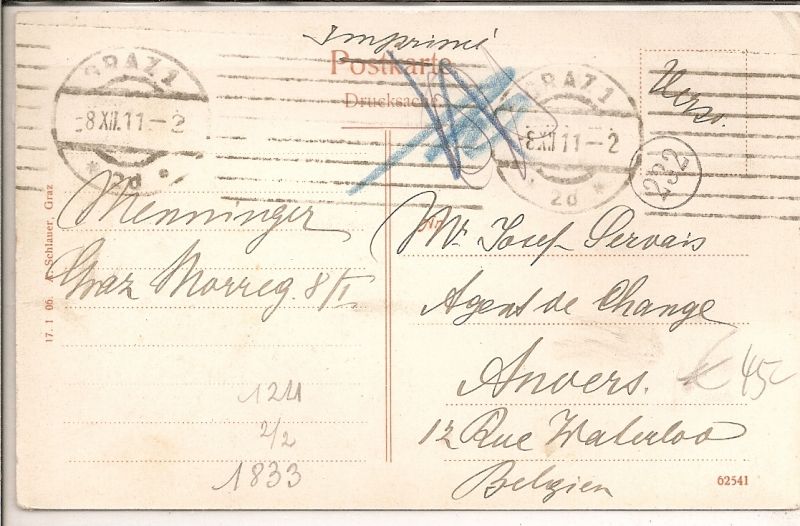 Imprimé
Postkarte
Drucksache
GRAZ 1
8 XII. 11 - 2
2d
GRAZ 1
8 XII 11 - 2
2d
Verso.
232
Menninger
Graz 8/I
An
Mr Josef Servais
Agent de Change
Anvers.
12 Rue Waterloo
Belgien
1211
2/2
1833
45
17. 1 06. A. Schlauer, Graz
62541